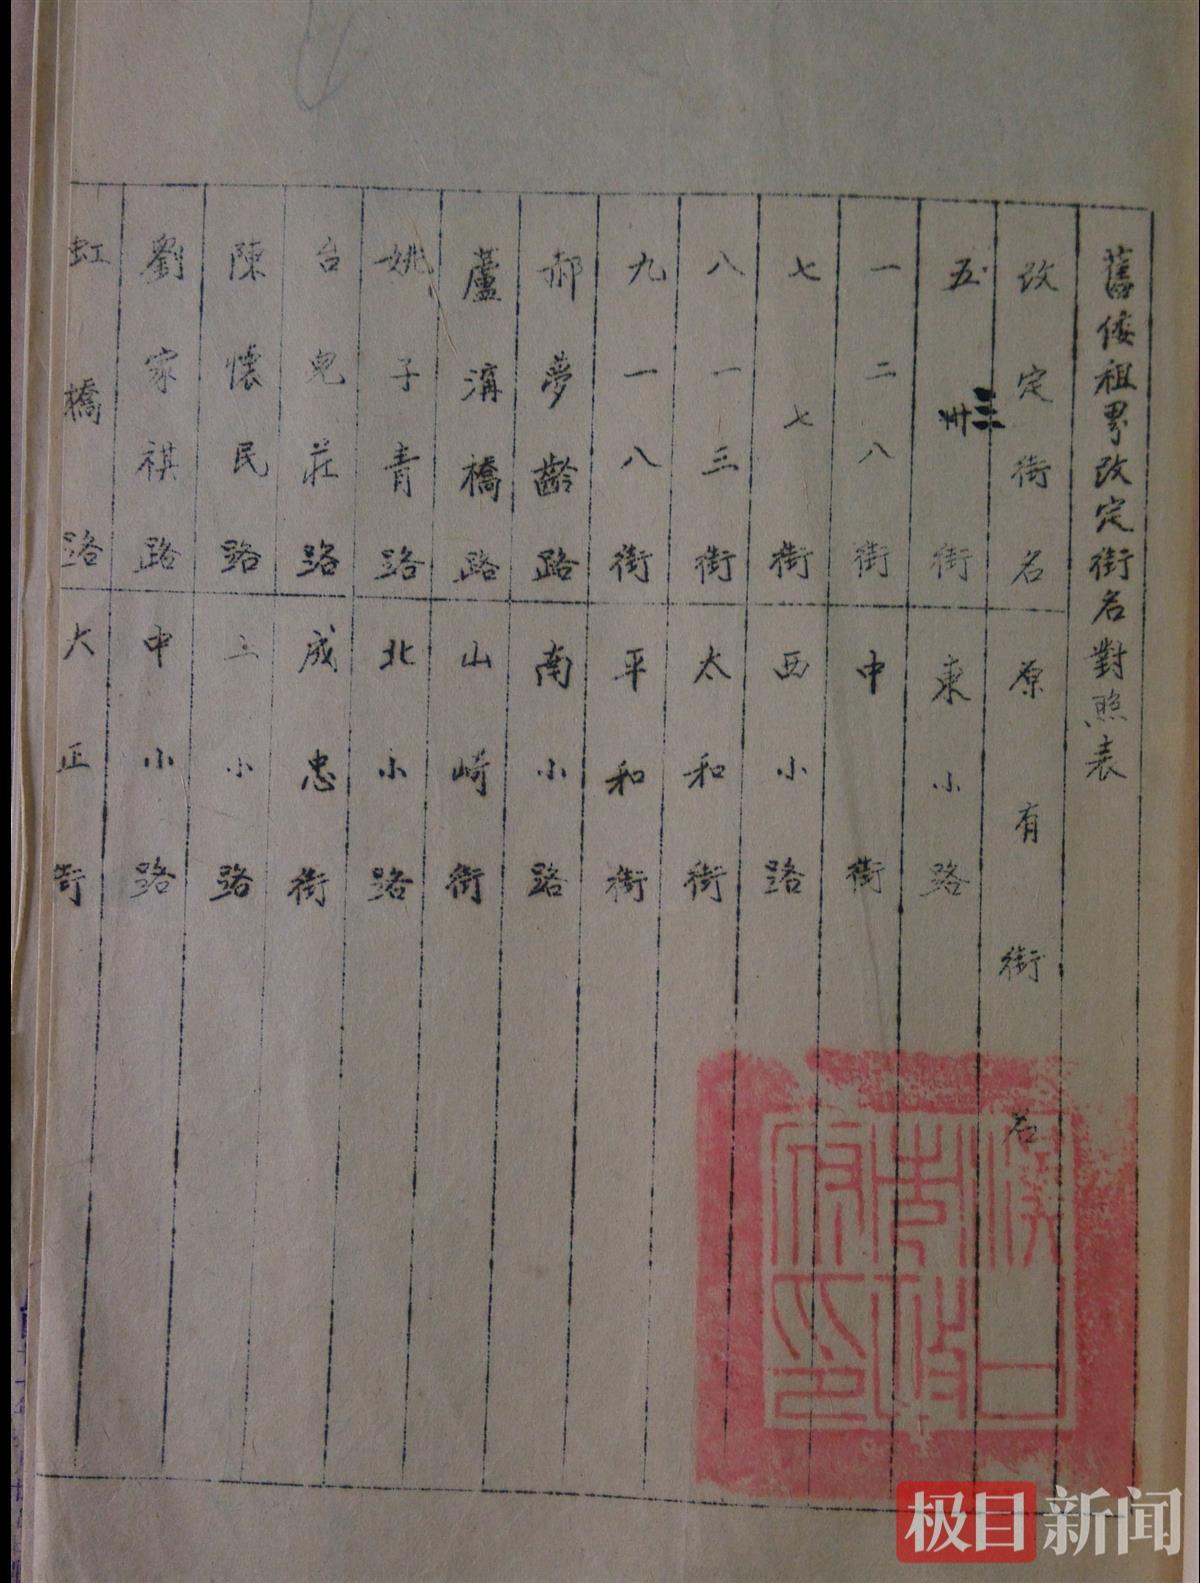 舊倭租界改定街名對照表
改定街名 原有街名
五三卅街 東小路
一二八街 中街
七七街 西小路
八一三街 太和街
九一八街 平和街
郝夢齡路 南小路
蘆溝橋路 山崎街
姚子青路 北小路
台兒莊路 成忠街
陳懷民路 上小路
劉家祺路 中小路
虹橋路 大正街
漢口市政府印
极目新闻